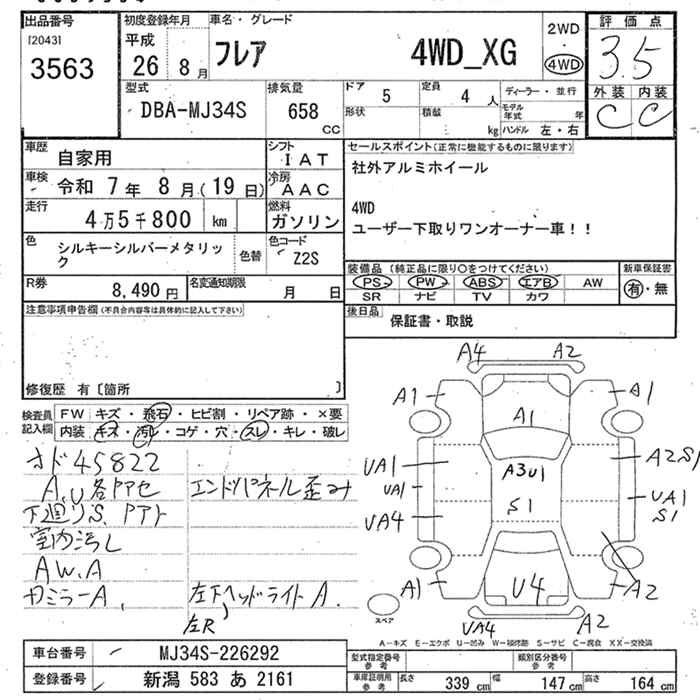 出品番号
[2043]
3563
初度登録年月
平成
26 8 月
車名・グレード
フレア 4WD_XG
2WD
・
4WD
評価点
3.5
外装 内装
C C
型式
DBA-MJ34S
排気量
658
CC
ドア 5
形状
定員 4 人
積載 kg
ディーラー・並行
モデル年式 年
ハンドル 左・右
車歴
自家用
シフト
I A T
車検
令和 7 年 8 月 (19 日)
冷房
A A C
走行
4 万 5 千 800 km
燃料
ガソリン
色
シルキーシルバーメタリッ
ク
色替
色コード
Z2S
R券
8,490 円
名変通知期限
月 日
セールスポイント(正常に機能するものに限ります)
社外アルミホイール
4WD
ユーザー下取りワンオーナー車!!
装備品 (純正品に限り○をつけてください)
PS PW ABS エアB AW
SR ナビ TV カワ
新車保証書
有・無
後日品
保証書・取説
注意事項申告欄(不具合内容等は具体的に記入して下さい)
修復歴 有〔箇所 〕
検査員
記入欄
FW キズ・飛石・ヒビ割・リペア跡・×要
内装 キズ・汚れ・コゲ・穴・スレ・キレ・破レ
オド45822
A,U各アセ
エンドパネル歪み
下廻りS、アト
室内汚し
AW.A
カミラーA、
左下ヘッドライトA.
左R
A4 A2
A1 A1
A1
UA1 A3U1 A2S1
UA1 UA1
S1 S1
UA4
A1 U4 A2
UA4 A2
スペア
A-キズ E-エクボ U-凹み W-補修跡 S-サビ C-腐食 XX-交換済
車台番号 MJ34S-226292
登録番号 新潟 583 あ 2161
型式指定番号
参考
類別区分番号
参考
車庫証明用
参考
長さ 339 cm 幅 147 cm 高さ 164 cm